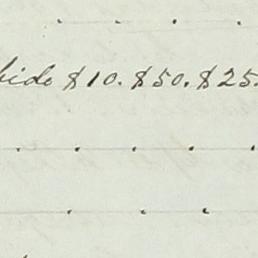 bido $10. $50. $25.